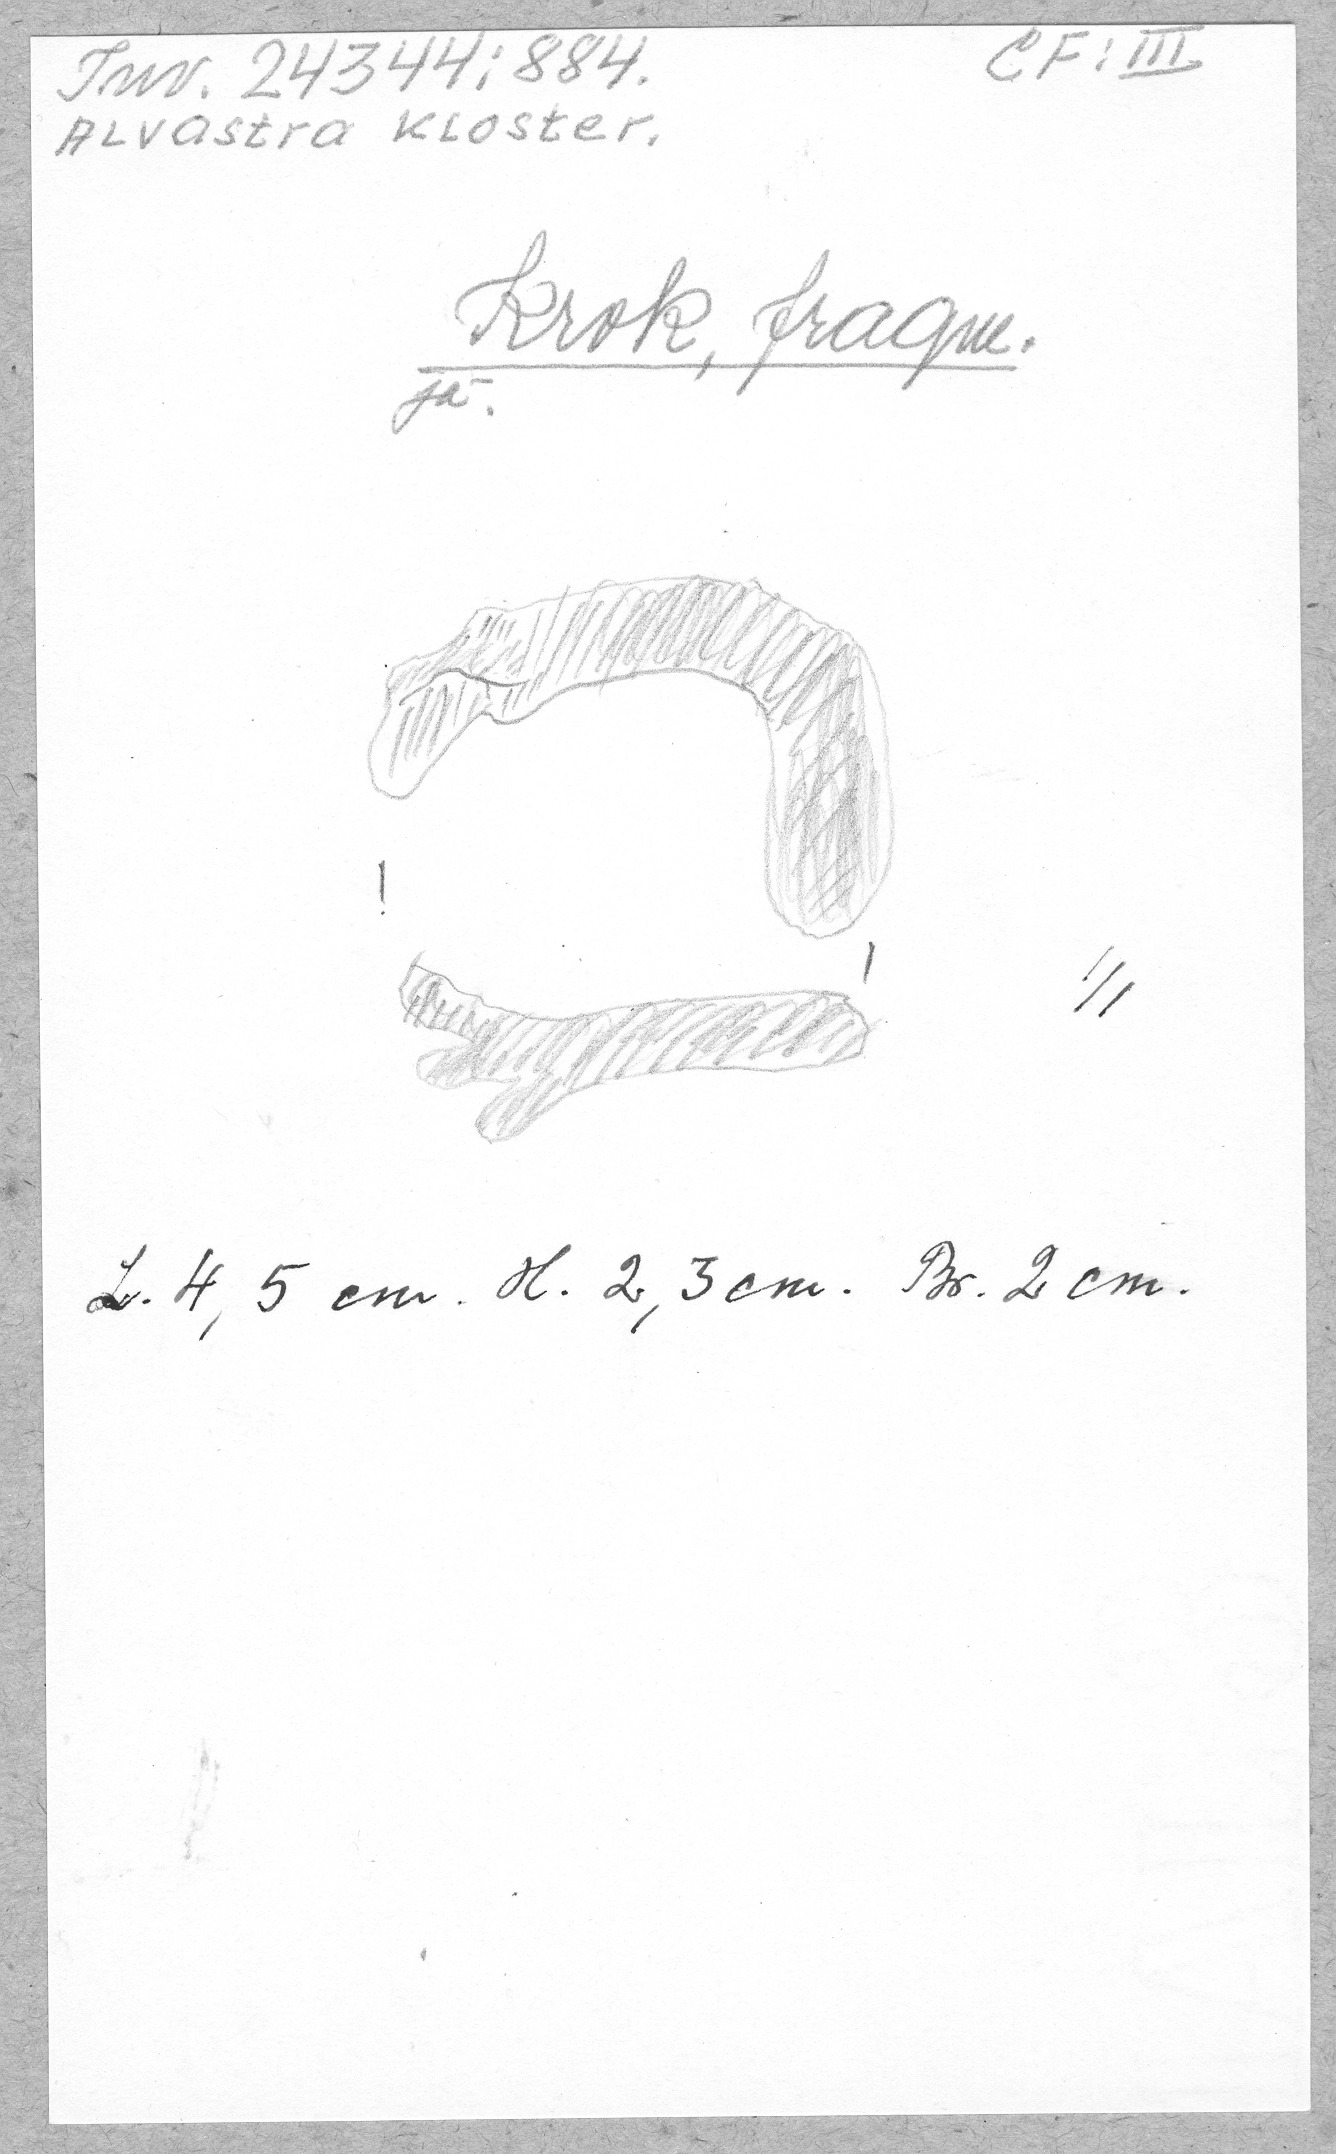 Inv. 24344:884. CF:III
ALVastra KLoster.
Krok, fragm.
jä.
1/1
L. 4,5 cm. H. 2,3 cm. Br. 2 cm.